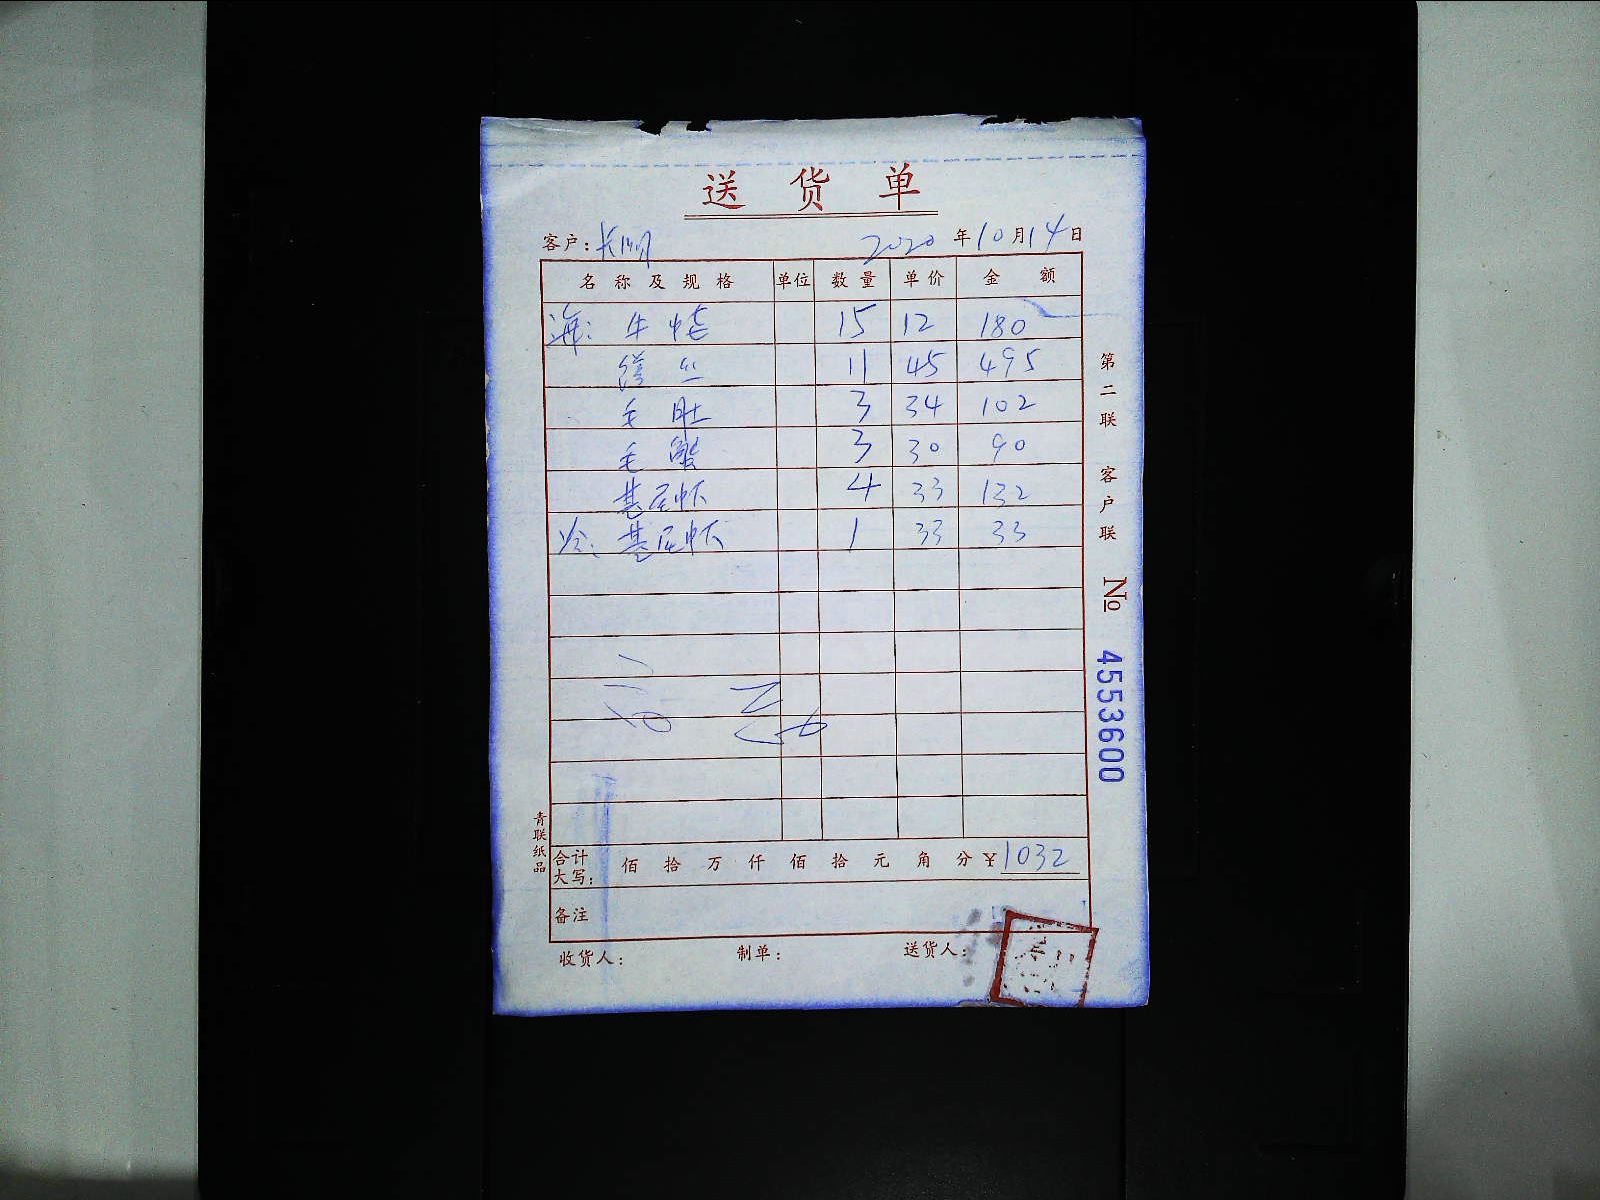 送货单
客户: 2020年10月14日
名称及规格 单位 数量 单价 金额
海: 15 12 180
丝 11 45 495
毛肚 3 34 102
毛 3 30 90
基尾虾 4 33 132
冷: 基尾虾 1 33 33
合计大写: 佰 拾 万 仟 佰 拾 元 角 分 ¥1032
备注
收货人: 制单: 送货人:
第二联 客户联 № 4553600
青联纸品